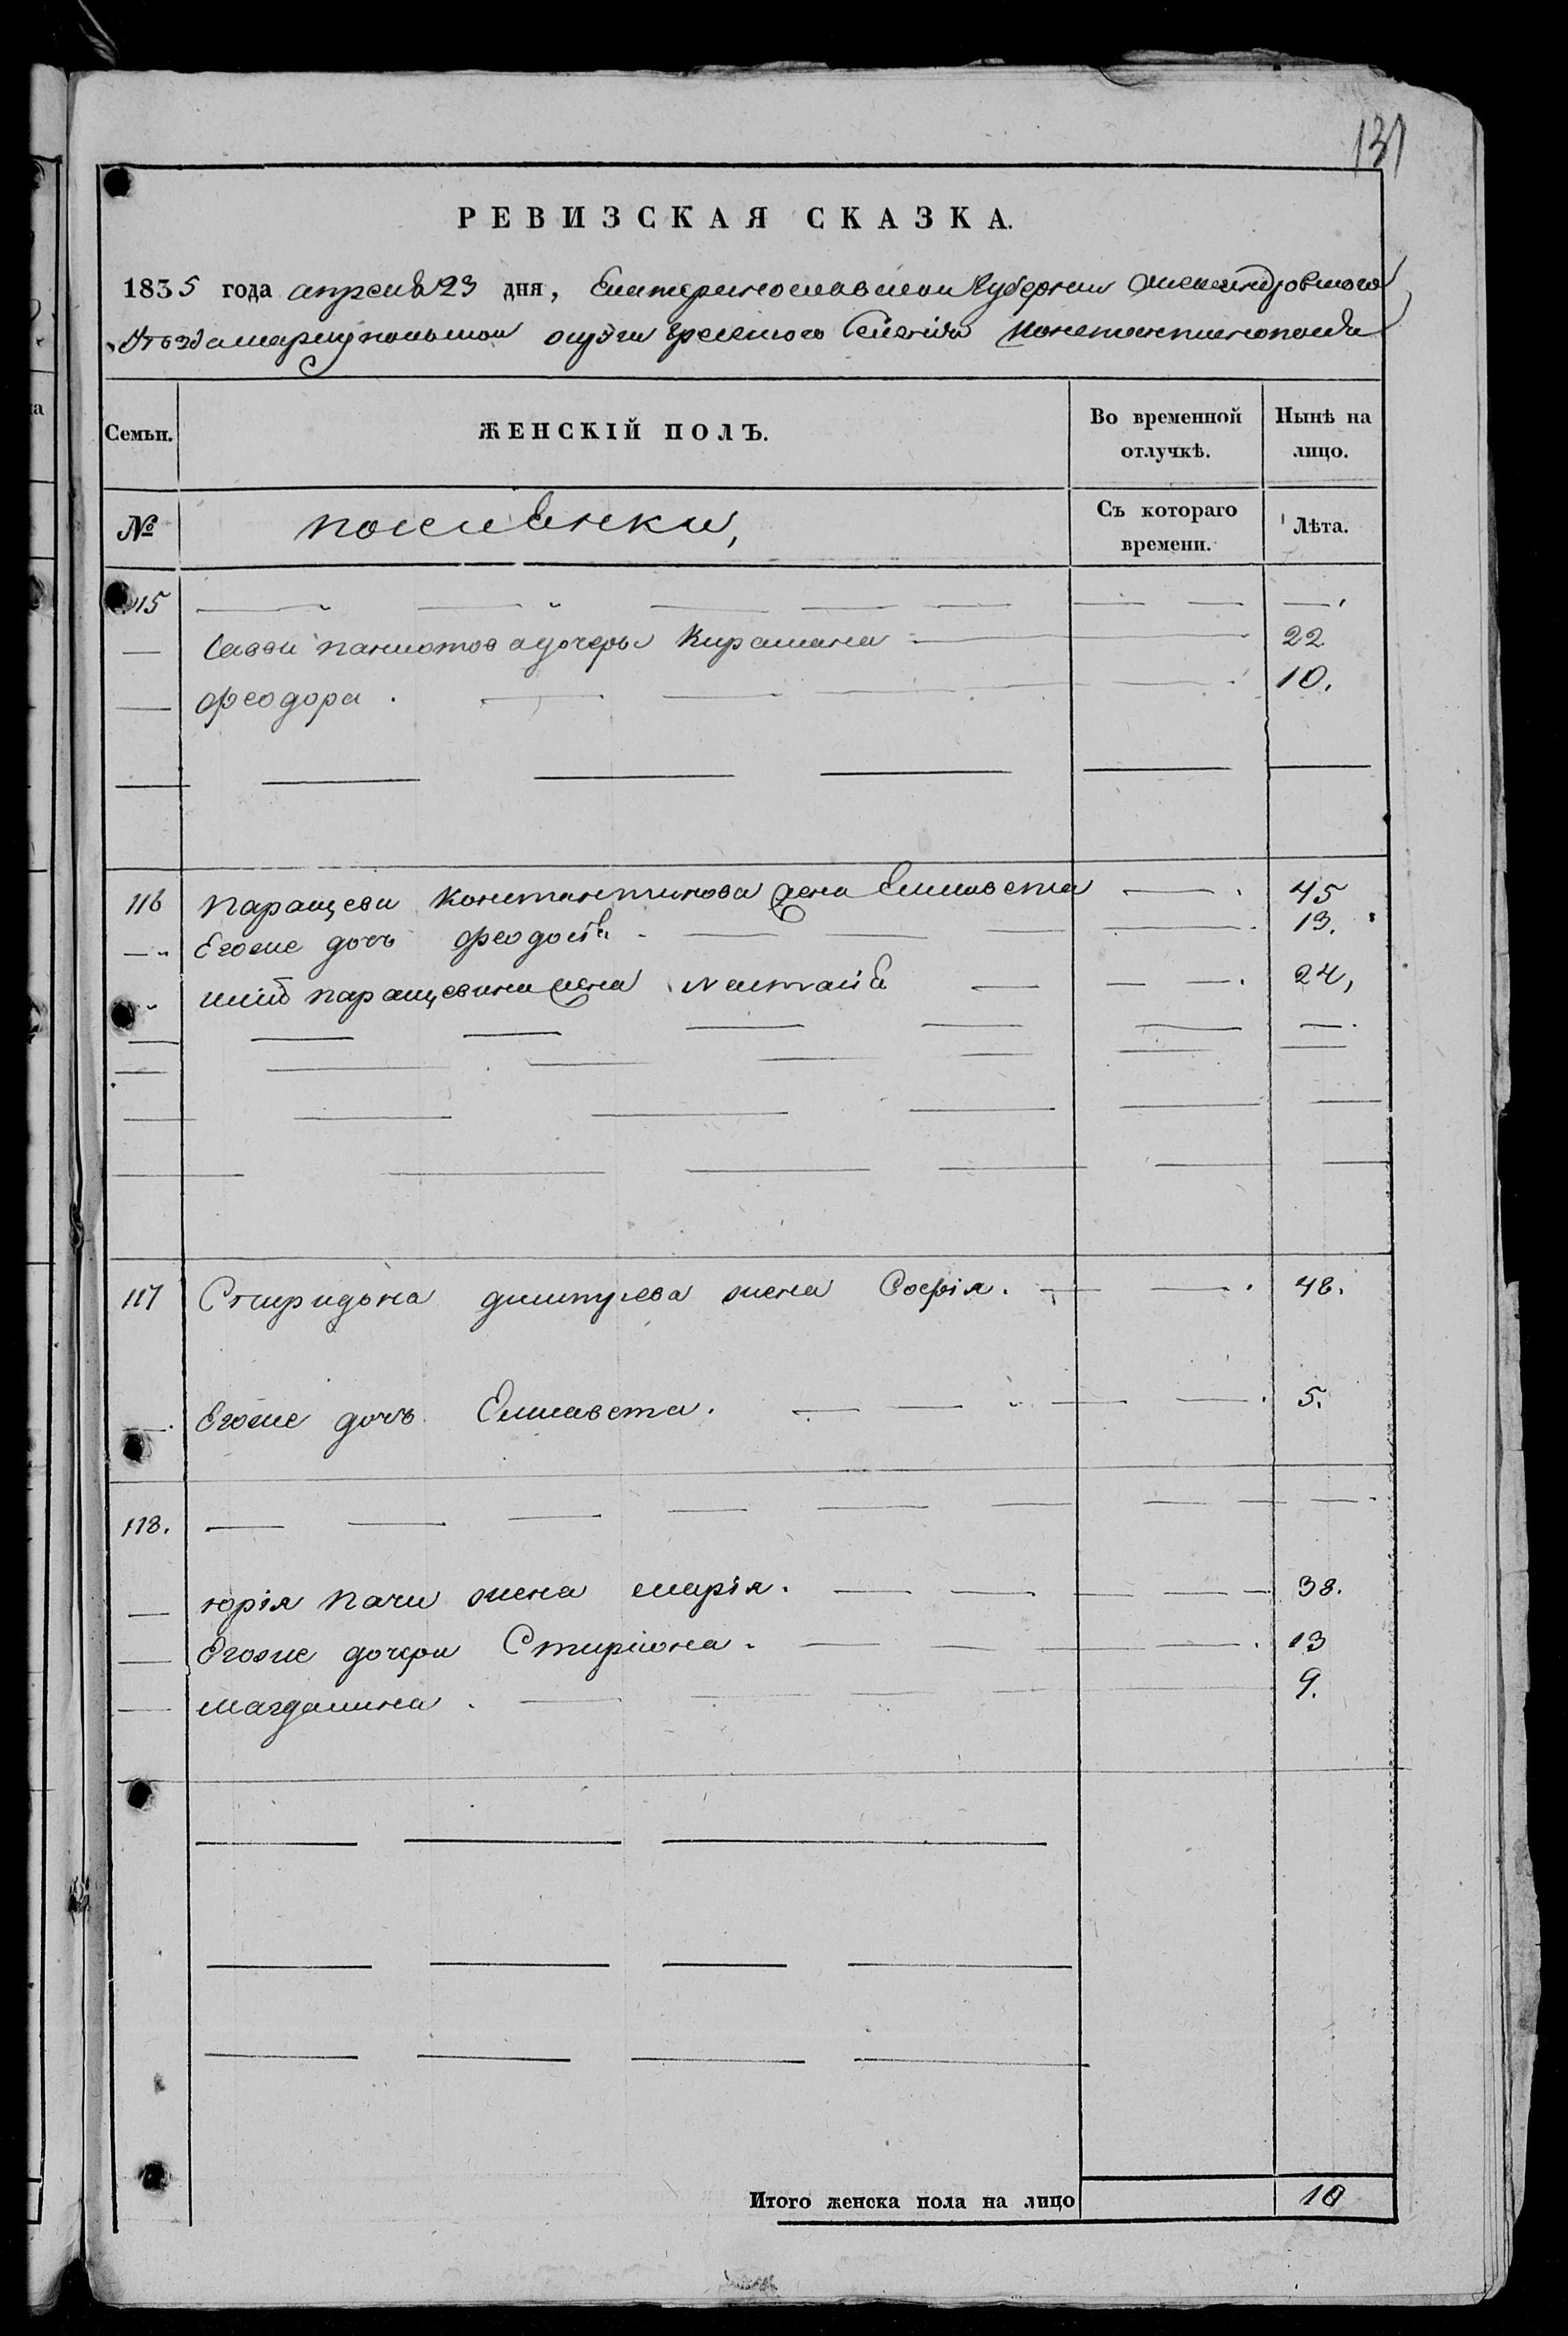 131
РЕВИЗСКАЯ СКАЗКА.
1835 года апреля 23 дня, Екатеринославской Губернии Александровского
уѣзда мариупольской округи греческого Селенія Константинополя
Семьи. ЖЕНСКІЙ ПОЛЪ. Во временной отлучкѣ. Нынѣ на лицо.
№ поселянки, Съ котораго времени. Лѣта.
115
Саввы паниотова дочеры Кирамана 22
Феодора. 10.
116 Паращева Константинова жена Елисавета 45
Егоже дочь Феодосія 13.
паращевина жена Наталія 24,
117 Спиридона димитріева жена Софія. 48.
Егоже дочь Елисавета. 5.
118.
юрія пачи жена марія. 38.
Егоже дочери Стиріона. 13
магдалина. 9.
Итого женска пола на лицо 10